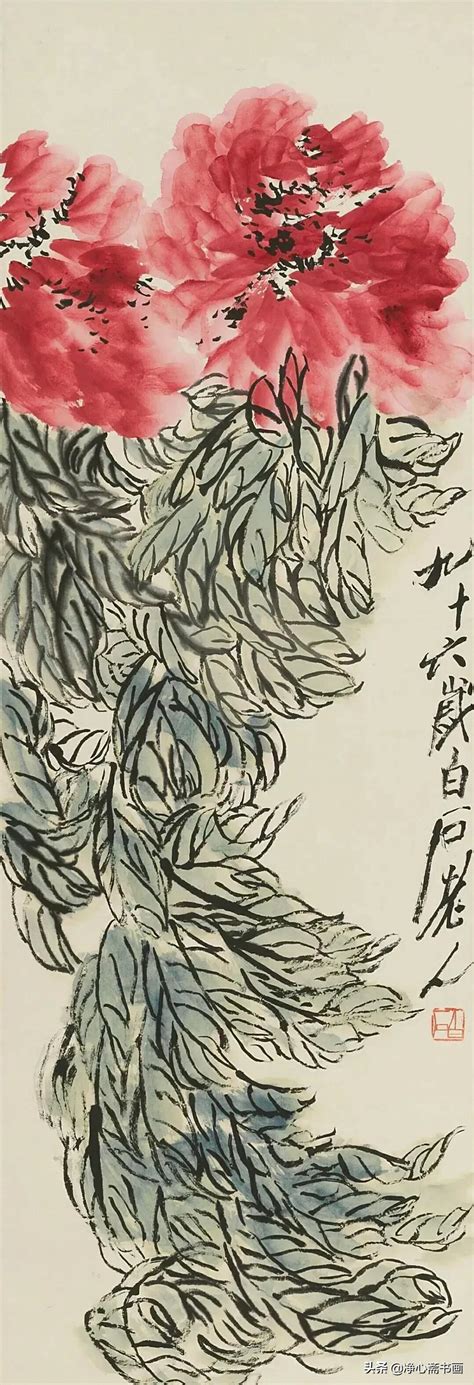 九十六歲白石老人
白石
头条@净心斋书画